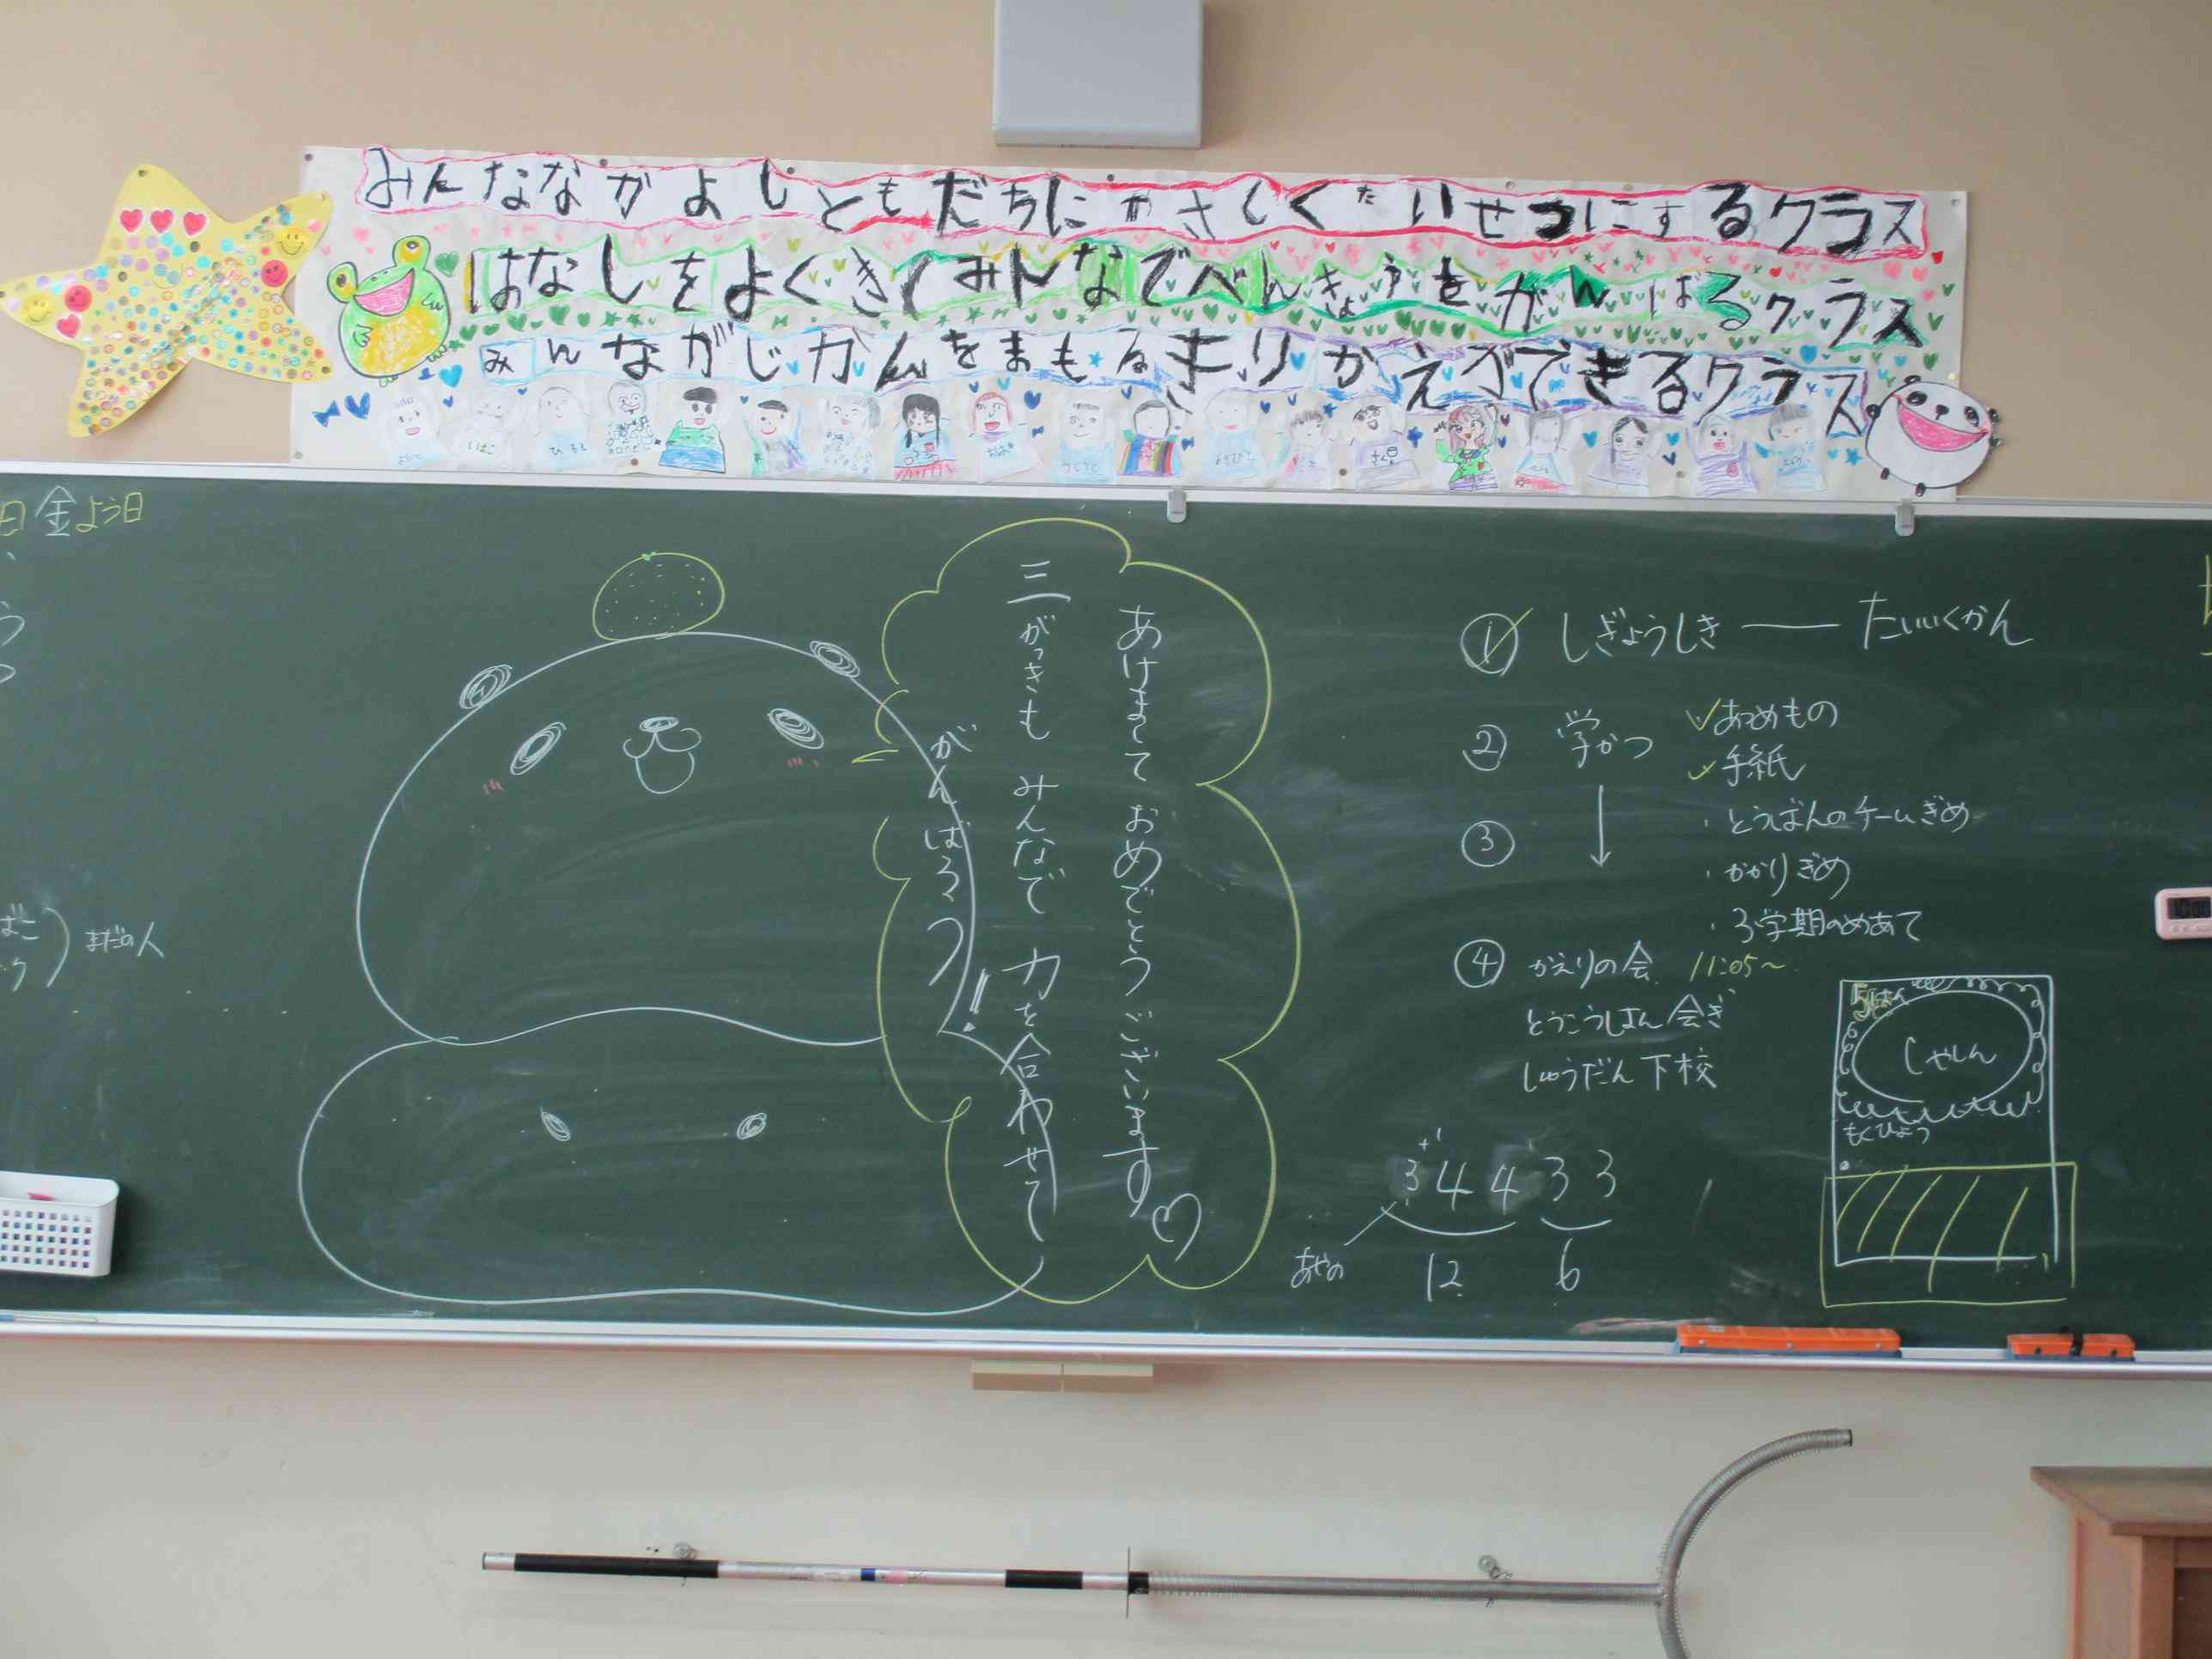 みんななかよしともだちにやさしくたいせつにするクラス
はなしをよくきくみんなでべんきょうをがんばるクラス
みんながじかんをまもるきりかえができるクラス
金よう日
まだの人
あけまして おめでとう ございます♡
三がっきも みんなで 力を合わせて
がんばろうっ!
① しぎょうしき ― たいいくかん
② 学かつ
✓あつめもの
✓手紙
・とうばんのチームぎめ
③ ↓
・かかりぎめ
・3学期のめあて
④ かえりの会 11:05~
とうこうはん会ぎ
しゅうだん下校
しゃしん
もくひょう
+1
3 4 4 3 3
あやの
12 6